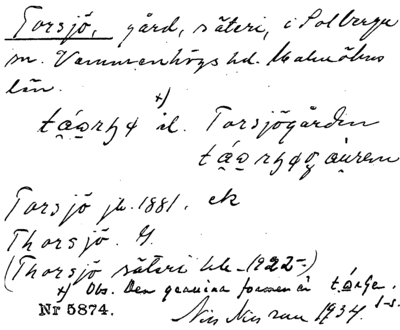 Torsjö, gård, säteri, i Solberga
sn. Vemmenhögs hd. Malmöhus
län.
x)
el. Torsjögården
Torsjö jb. 1881. ek
Thorsjö. G.
(Thorsjö säteri 1922-)
x) Obs. Den genuina formen är
Nr 5874. Nils Nilsson 1934.